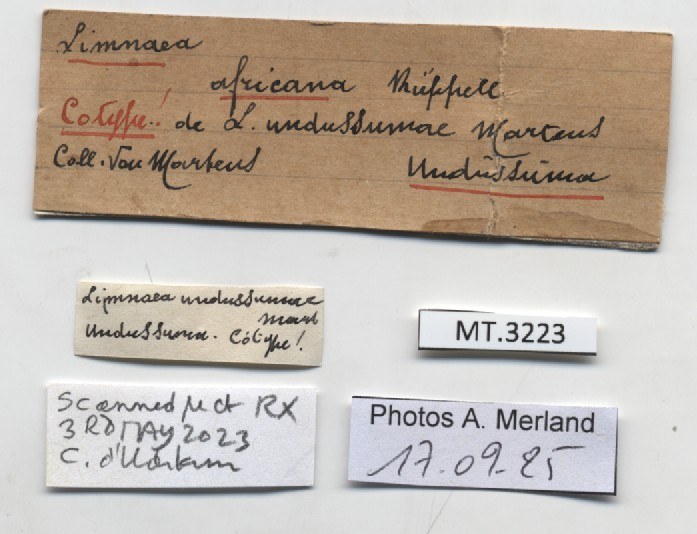 Limnaea
africana Rüppell
Cotype! de L. undussumae Martens
Coll. Von Martens Undussuma
Limnaea undussumae
Mart
Undussuma. Cotype!
MT.3223
Scanned µct RX
3RD MAY 2023
C.
Photos A. Merland
17.09.25